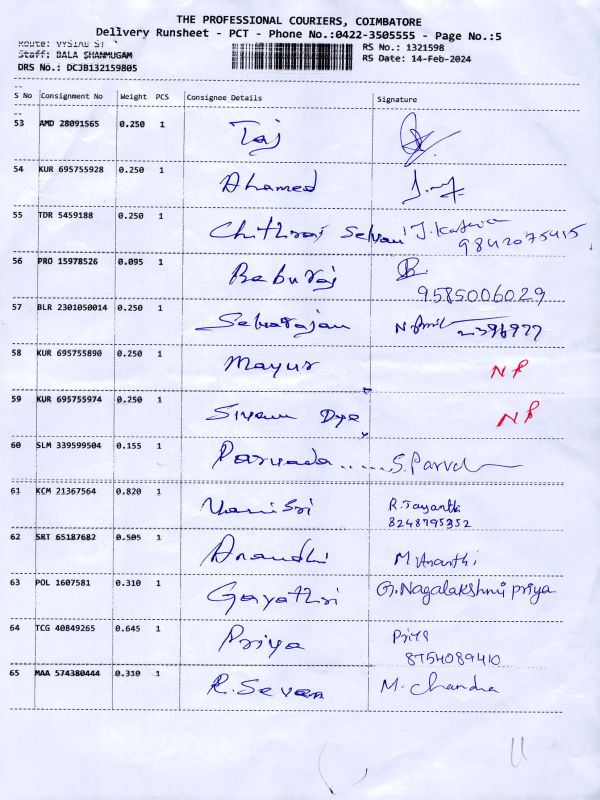 THE PROFESSIONAL COURIERS, COIMBATORE
Delivery Runsheet - PCT - Phone No.:0422-3505555 - Page No.:5
Route: VYSIAL ST
RS No.: 1321598
Staff: BALA SHANMUGAM
RS Date: 14-Feb-2024
DRS No.: DCJB132159805
S No Consignment No Weight PCS Consignee Details Signature
53 AMD 28091565 0.250 1 Taj
54 KUR 695755928 0.250 1 Ahamed
55 TDR 5459188 0.250 1 Chithrai Selvan
9842075415
56 PRO 15978526 0.095 1 Baburaj
9585006029
57 BLR 2301050014 0.250 1 Selvarajan 2396977
58 KUR 695755890 0.250 1 Mayur NP
59 KUR 695755974 0.250 1 Sivam Dye NP
60 SLM 339599504 0.155 1 S. Parv
61 KCM 21367564 0.820 1 Vanisri R. Jayanthi
8248795352
62 SRT 65187682 0.505 1 Anandhi M Ananthi
63 POL 1607581 0.310 1 Gayathri G. Nagalakshmi priya
64 TCG 40849265 0.645 1 Priya Priya
8754089410
65 MAA 574380444 0.310 1 R. Sevan M. Chandra